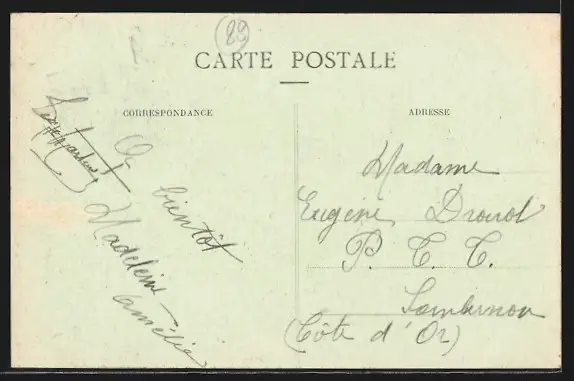 89
CARTE POSTALE
CORRESPONDANCE
A bientôt
Madeleine
Amélie
ADRESSE
Madame
Eugène Drouot
P. T. T.
Sombernon
(Côte d'Or)